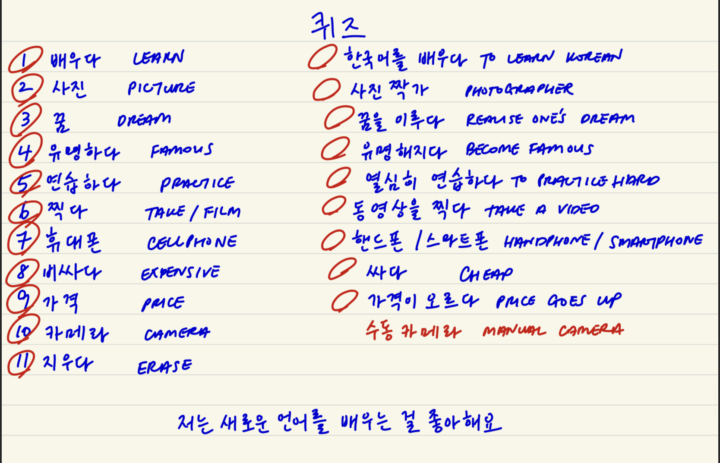 퀴즈
1 배우다 LEARN 한국어를 배우다 TO LEARN KOREAN
2 사진 PICTURE 사진 짝가 PHOTOGRAPHER
3 꿈 DREAM 꿈을 이루다 REALISE ONE'S DREAM
4 유명하다 FAMOUS 유명해지다 BECOME FAMOUS
5 연습하다 PRACTICE 열심히 연습하다 TO PRACTICE HARD
6 찍다 TAKE / FILM 동영상을 찍다 TAKE A VIDEO
7 휴대폰 CELLPHONE 핸드폰 / 스마트폰 HANDPHONE / SMARTPHONE
8 비싸다 EXPENSIVE 싸다 CHEAP
9 가격 PRICE 가격이 오르다 PRICE GOES UP
10 카메라 CAMERA 수동 카메라 MANUAL CAMERA
11 지우다 ERASE
저는 새로운 언어를 배우는 걸 좋아해요